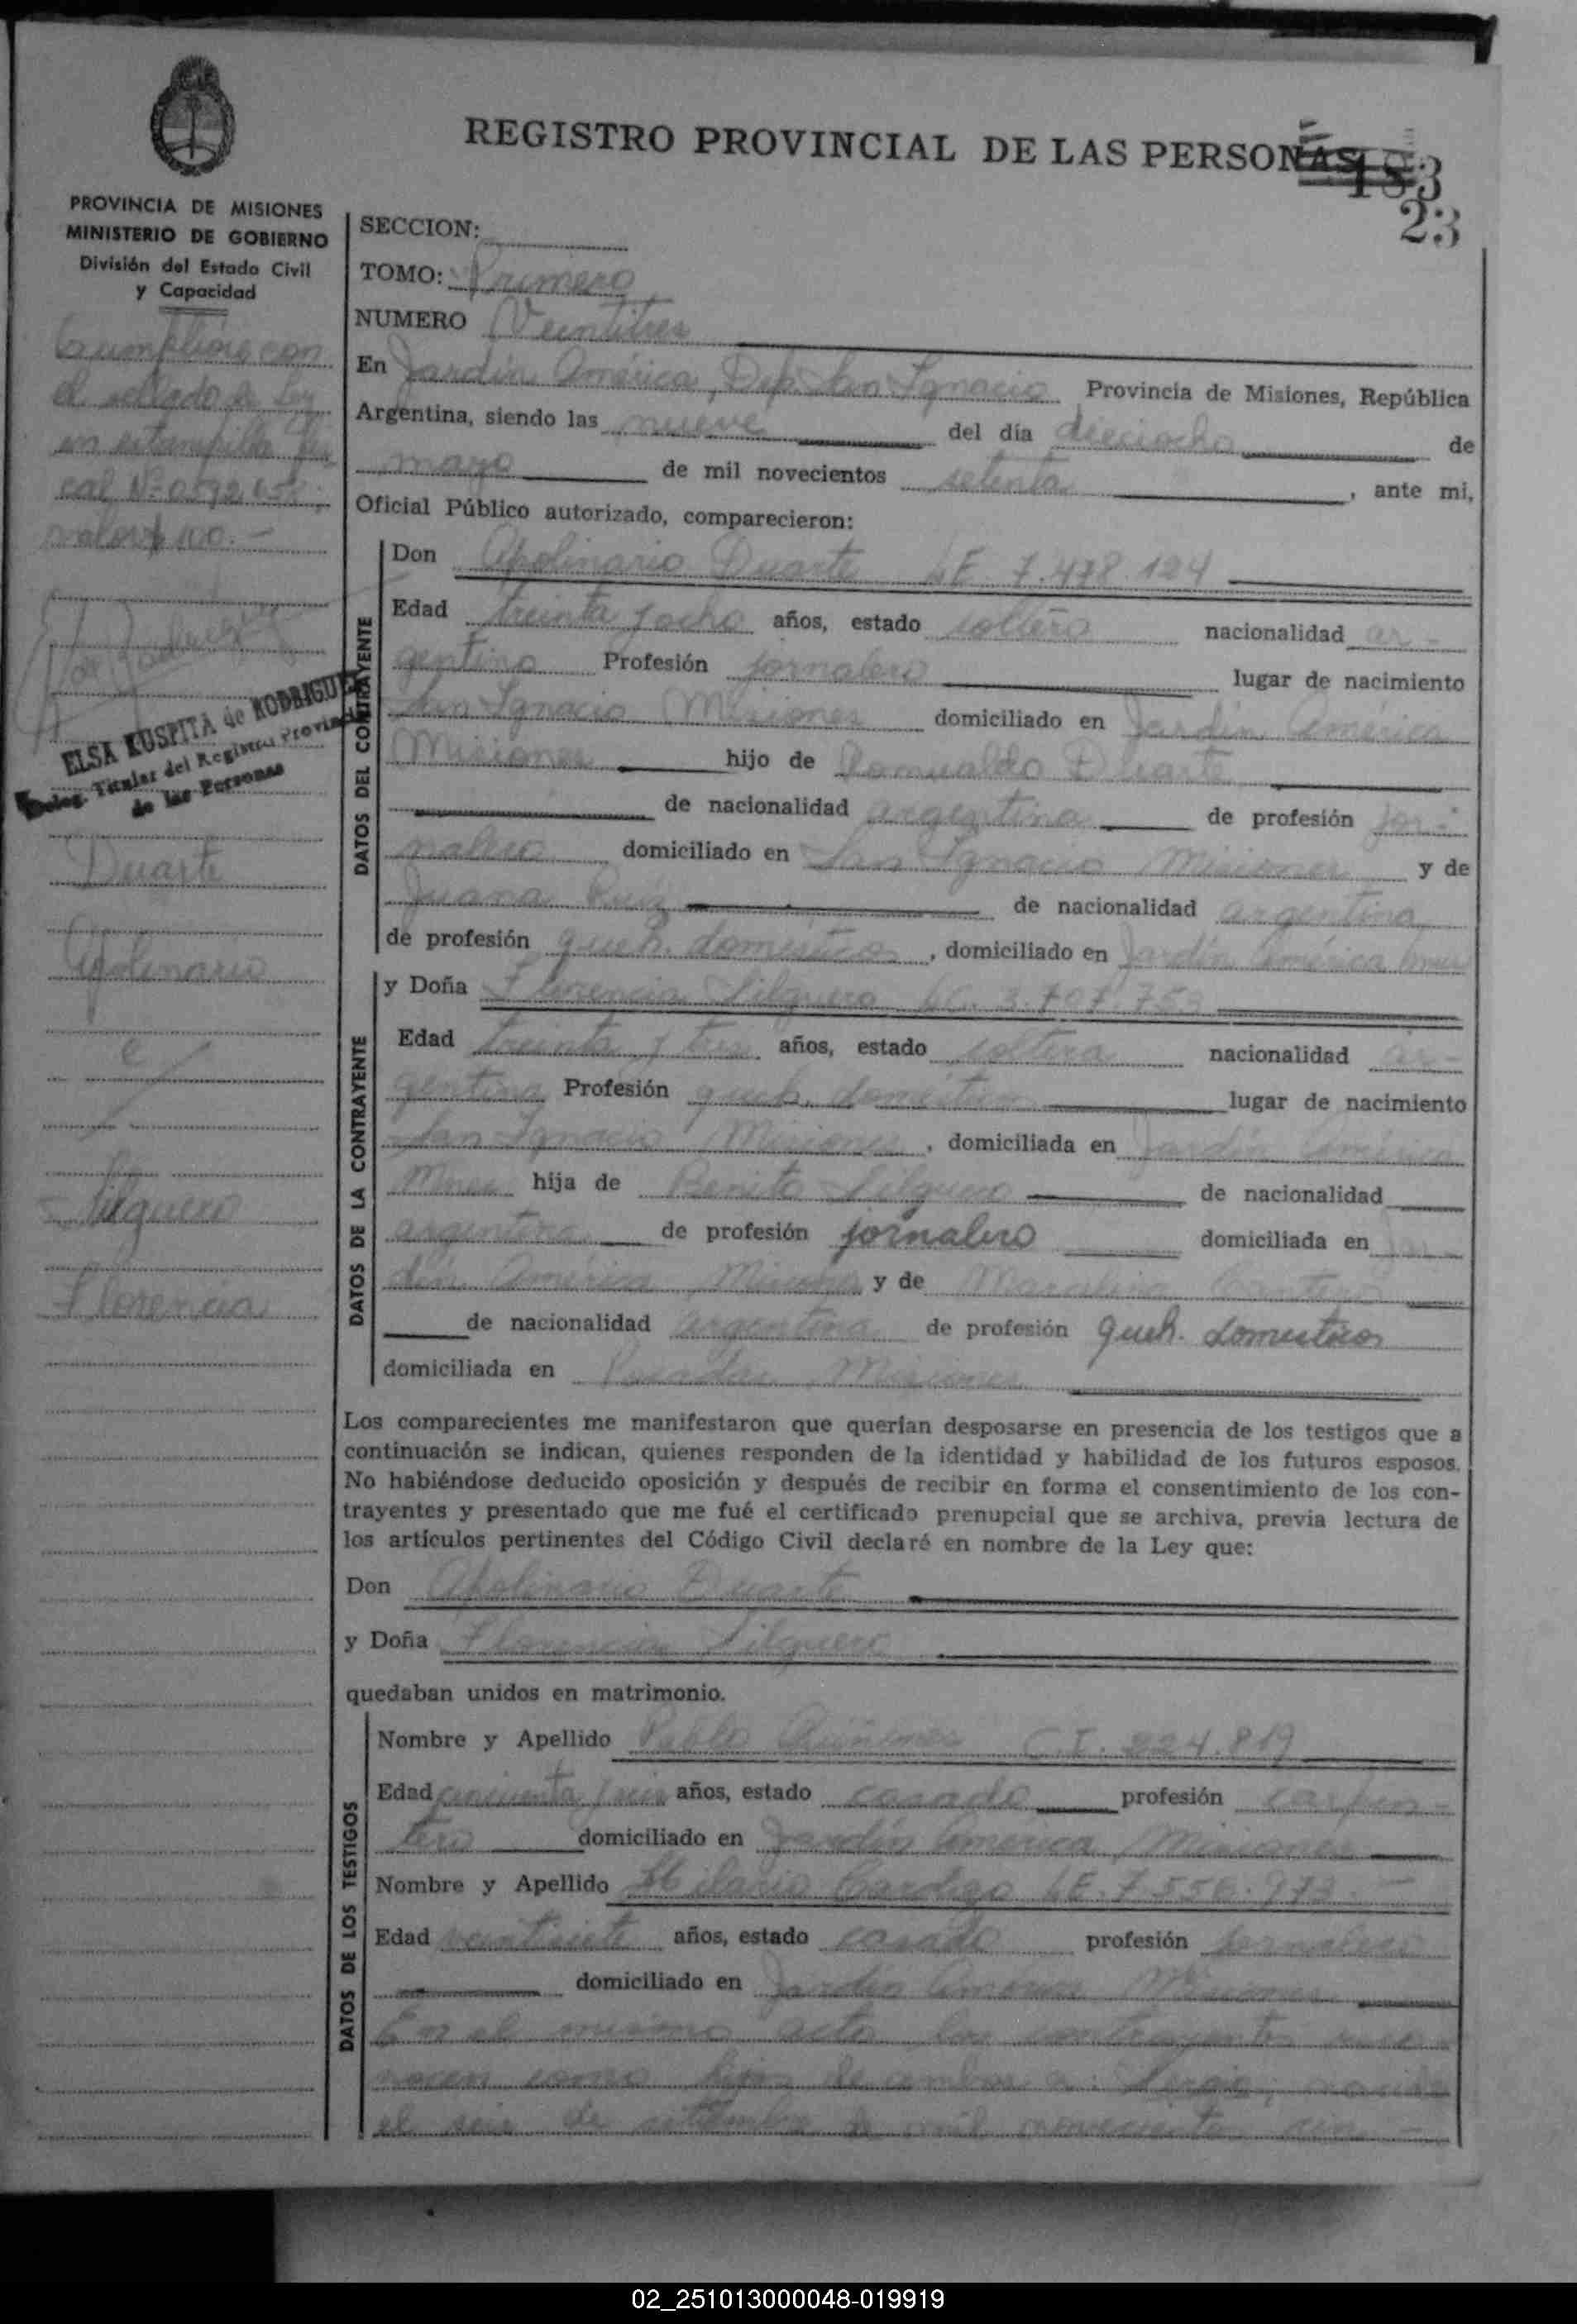 REGISTRO PROVINCIAL DE LAS PERSONAS
183
23
PROVINCIA DE MISIONES
MINISTERIO DE GOBIERNO
División del Estado Civil
y Capacidad
Cumplióse con
el sellado de Ley
en estampilla fis-
cal Nº
valor $ 100.-
ELSA KUSPITA de RODRIGUEZ
Deleg. Titular del Registro Provincial
de las Personas
Duarte
Apolinario
e
Silguero
Florencia
SECCION:
TOMO: Primero
NUMERO Veintitres
En Jardín América, Dep. San Ignacio Provincia de Misiones, República
Argentina, siendo las nueve del día dieciocho de
mayo de mil novecientos setenta, ante mi,
Oficial Público autorizado, comparecieron:
DATOS DEL CONTRAYENTE
Don Apolinario Duarte LE. 7.478.124
Edad treinta y ocho años, estado soltero nacionalidad ar-
gentino Profesión jornalero lugar de nacimiento
San Ignacio Misiones domiciliado en Jardín América
Misiones hijo de Romualdo Duarte
de nacionalidad argentina de profesión jor-
nalero domiciliado en San Ignacio Misiones y de
Juana Ruiz de nacionalidad argentina
de profesión queh. domésticos, domiciliado en Jardín América
DATOS DE LA CONTRAYENTE
y Doña Florencia Silguero LC. 3.707.753
Edad treinta y tres años, estado soltera nacionalidad ar-
gentina Profesión queh. domésticos lugar de nacimiento
San Ignacio Misiones, domiciliada en Jardín América
Mnes hija de Benito Silguero de nacionalidad
argentina de profesión jornalero domiciliada en Jar-
dín América Misiones y de
de nacionalidad argentina de profesión queh. domesticos
domiciliada en Posadas Misiones
Los comparecientes me manifestaron que querían desposarse en presencia de los testigos que a
continuación se indican, quienes responden de la identidad y habilidad de los futuros esposos.
No habiéndose deducido oposición y después de recibir en forma el consentimiento de los con-
trayentes y presentado que me fué el certificado prenupcial que se archiva, previa lectura de
los artículos pertinentes del Código Civil declaré en nombre de la Ley que:
Don Apolinario Duarte
y Doña Florencia Silguero
quedaban unidos en matrimonio.
DATOS DE LOS TESTIGOS
Nombre y Apellido Pablo C.I. 224.819
Edad cincuenta y seis años, estado casado profesión carpin-
tero domiciliado en Jardín América Misiones
Nombre y Apellido Hilario Cardozo LE. 7.556.973.-
Edad veintisiete años, estado casado profesión jornalero
domiciliado en Jardín América Misiones
En el mismo acto los contrayentes reco-
nocen como hijos de ambos a: Sergio, nacido
el seis de setiembre de mil novecientos cin-
02_251013000048-019919